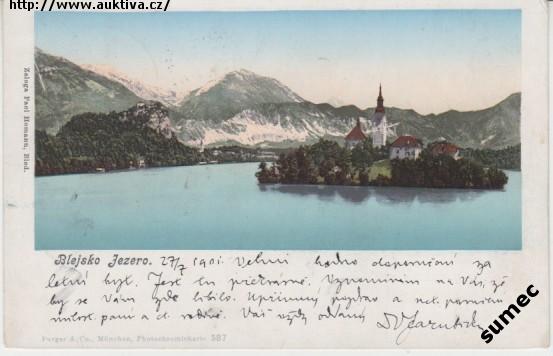 http://www.auktiva.cz/
Zaloga Pavl Homann, Bled.
Blejsko Jezero. 27/7 1901. Velmi hodno doporučení za
letní byt. Jest tu překrásně. Vzpomínám na Vás, že
by se Vám zde líbilo. Upřímný pozdrav a
milost. paní a ct. rodině. Váš vždy oddaný
Purger & Co., München, Photochromiekarte 587
sumec